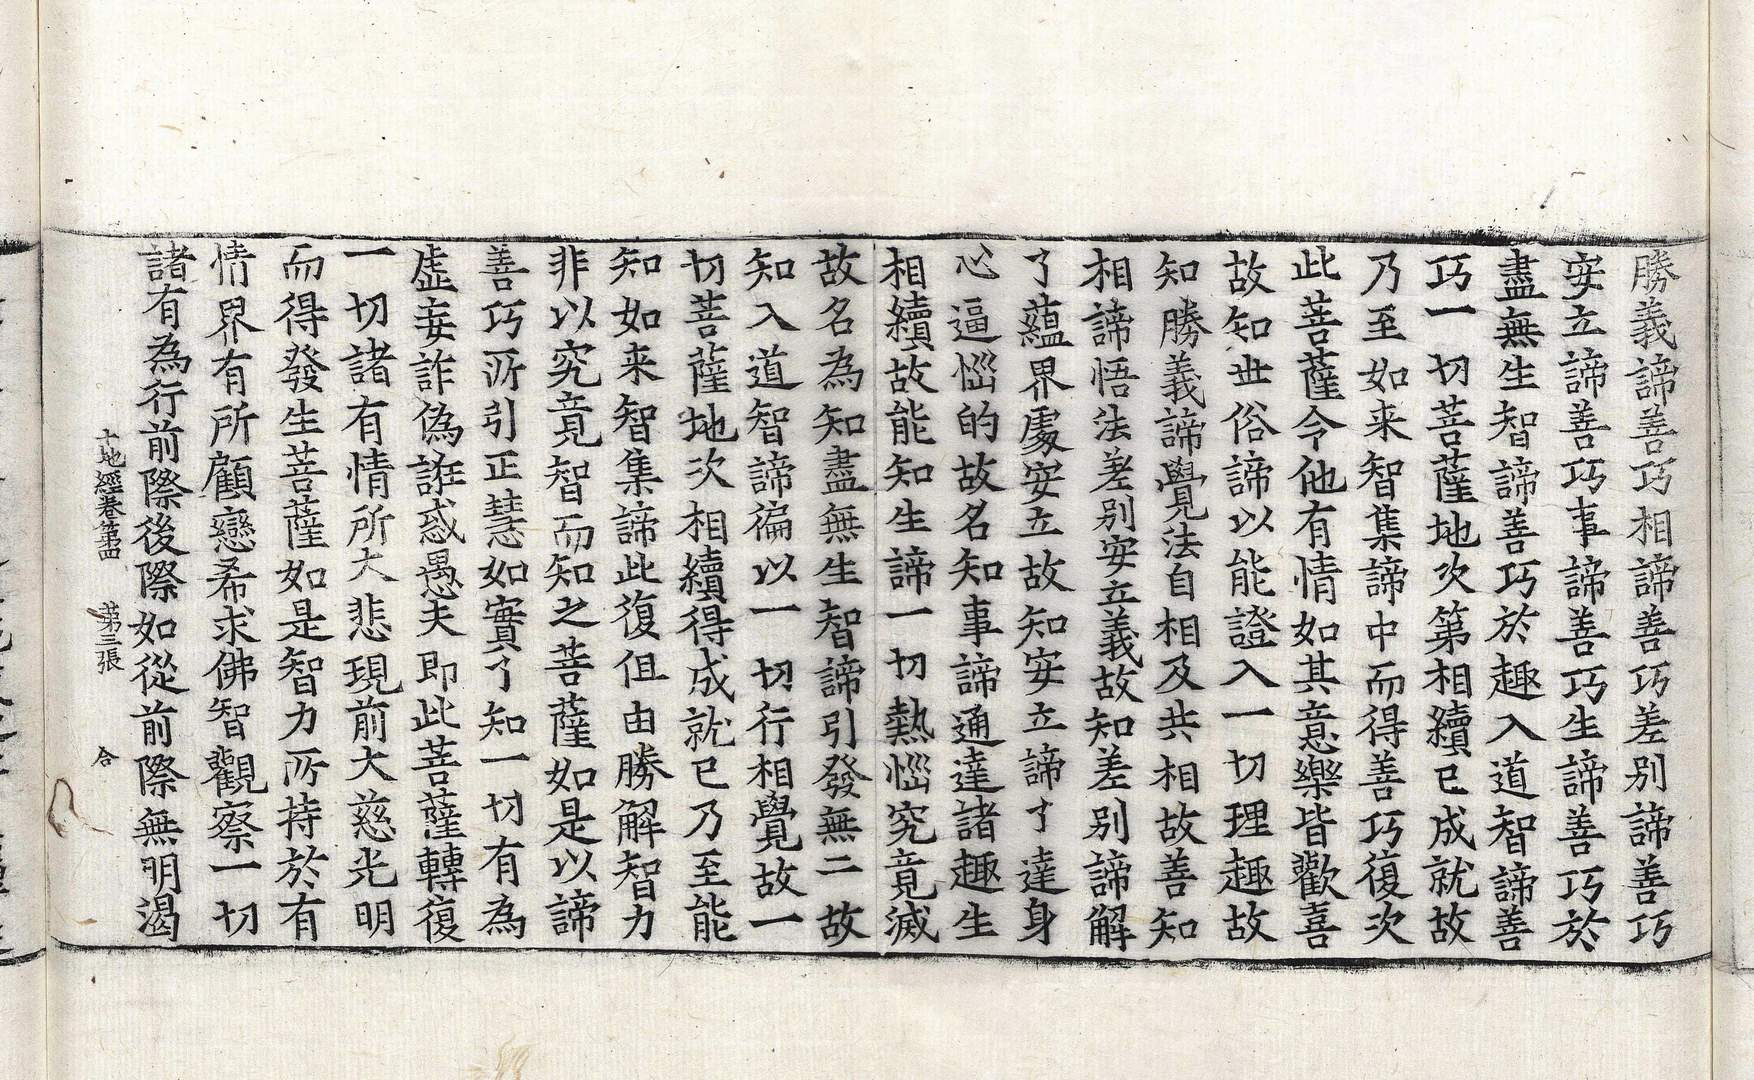 勝義諦善巧相諦善巧差别諦善巧
安立諦善巧事諦善巧生諦善巧於
盡無生智諦善巧於趣入道智諦善
巧一切菩薩地次第相續已成就故
乃至如来智集諦中而得善巧復次
此菩薩令他有情如其意樂皆歡喜
故知世俗諦以能證入一切理趣故
知勝義諦覺法自相及共相故善知
相諦悟法差别安立義故知差别諦解
了蘊界處安立故知安立諦了達身
心逼惱的故名知事諦通達諸趣生
相續故能知生諦一切熱惱究竟滅
故名為知盡無生智諦引發無二故
知入道智諦徧以一切行相覺故一
切菩薩地次相續得成就已乃至能
知如来智集諦此復伹由勝解智力
非以究竟智而知之菩薩如是以諦
善巧所引正慧如實了知一切有為
虚妄詐偽誑惑愚夫即此菩薩轉復
一切諸有情所大悲現前大慈光明
而得發生菩薩如是智力所持於有
情界有所顧戀希求佛智觀察一切
諸有為行前際後際如從前際無明渴
十地經卷第四　第三張　合